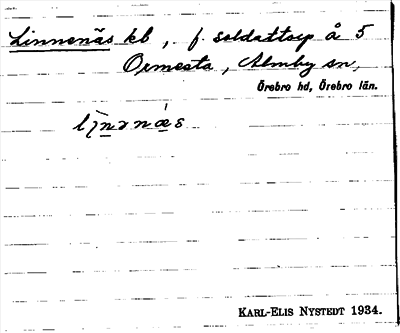 Linnenäs kb, f. soldattorp å 5
Ormesta, Almby sn,
Örebro hd, Örebro län.
KARL-ELIS NYSTEDT 1934.